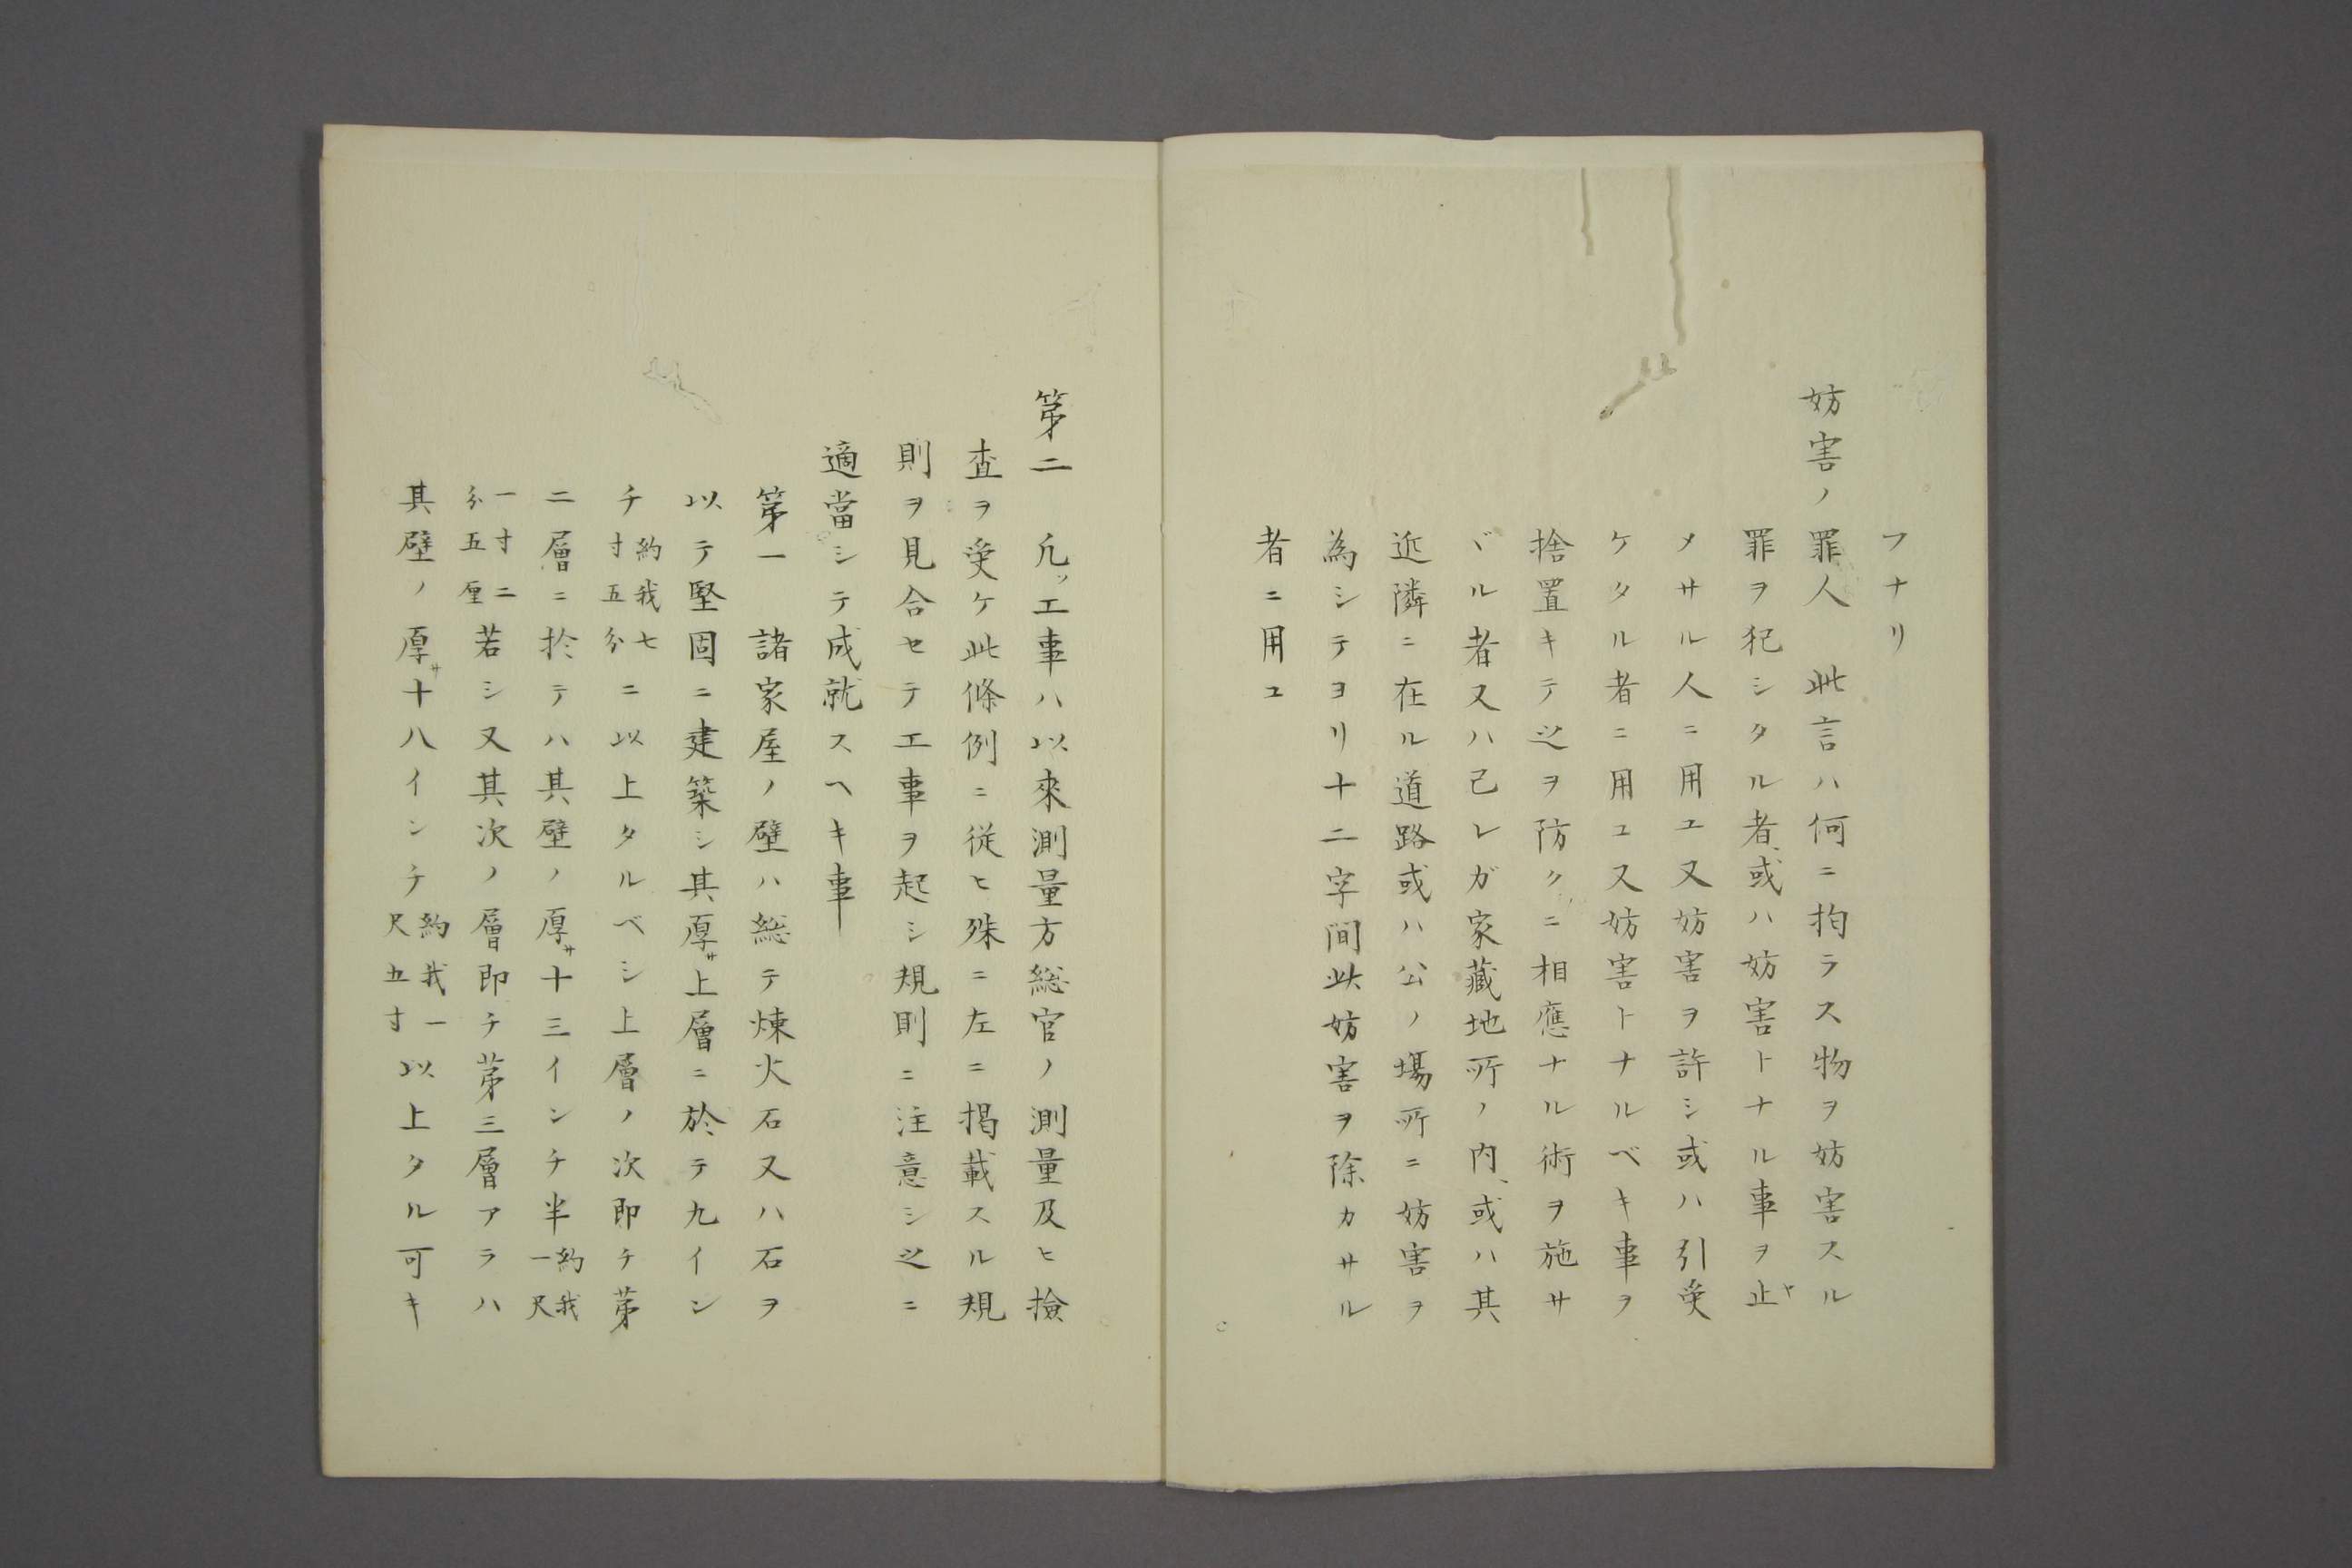 フナリ
妨害ノ罪人　此言ハ何ニ拘ラス物ヲ妨害スル
罪ヲ犯シタル者、或ハ妨害トナル事ヲ止ヤ
メサル人ニ用ユ又妨害ヲ許シ或ハ引受
ケタル者ニ用ユ又妨害トナルベキ事ヲ
捨置キテ之ヲ防クニ相應ナル術ヲ施サ
ヾル者又ハ己レガ家藏地所ノ内、或ハ其
近隣ニ在ル道路或ハ公ノ場所ニ妨害ヲ
為シテヨリ十二字間此妨害ヲ除カサル
者ニ用ユ
第二　凡ソ工事ハ以來測量方総官ノ測量及ヒ撿
査ヲ受ケ此條例ニ従ヒ殊ニ左ニ掲載スル規
則ヲ見合セテ工事ヲ起シ規則ニ注意シ之ニ
適當シテ成就スヘキ事
第一　諸家屋ノ壁ハ総テ煉火石又ハ石ヲ
以テ堅固ニ建築シ其厚サ上層ニ於テ九イン
チ約我七寸五分ニ以上タルベシ上層ノ次即チ苐
二層ニ於テハ其壁ノ厚サ十三インチ半約我一尺
一寸二分五厘若シ又其次ノ層即チ苐三層アラハ
其壁ノ厚サ十八インチ約我一尺五寸以上タル可キ